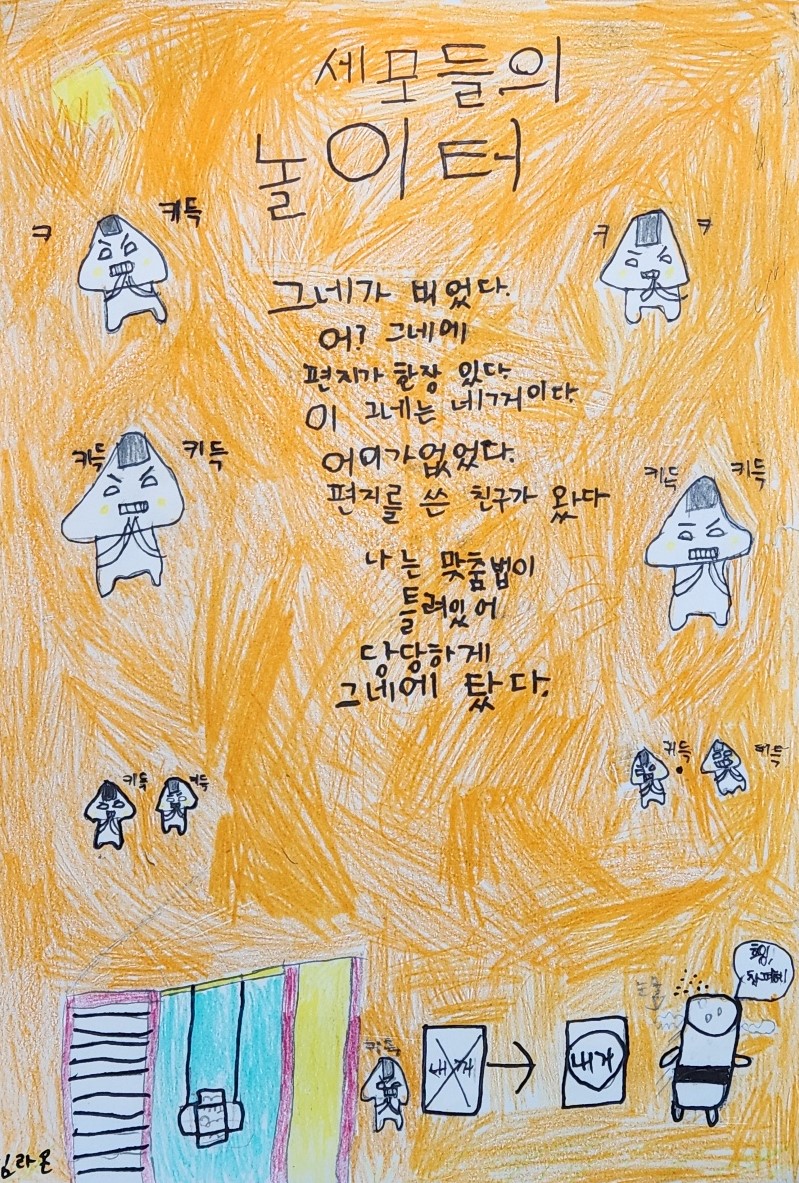 세모들의
놀이터
ㅋ
키득
ㅋ
ㅋ
그네가 비었다.
어? 그네에
편지가 한장 있다
이 그네는 네꺼이다.
어이가없었다.
편지를 쓴 친구가 왔다
키득
키득
키득
키득
나는 맞춤법이
틀려있어
당당하게
그네에 탔다.
키득
키득
키득
키득
키득
내꺼
내거
라온